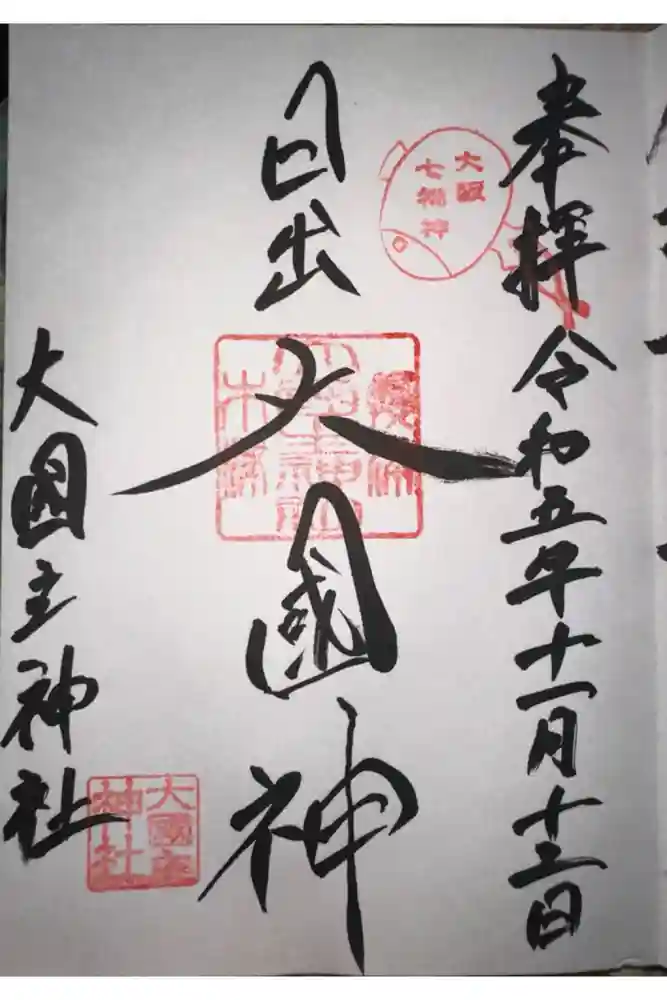 奉拝 令和五年十一月十二日
大阪
七福神
日出大國神
大国主神社
大國主
神社